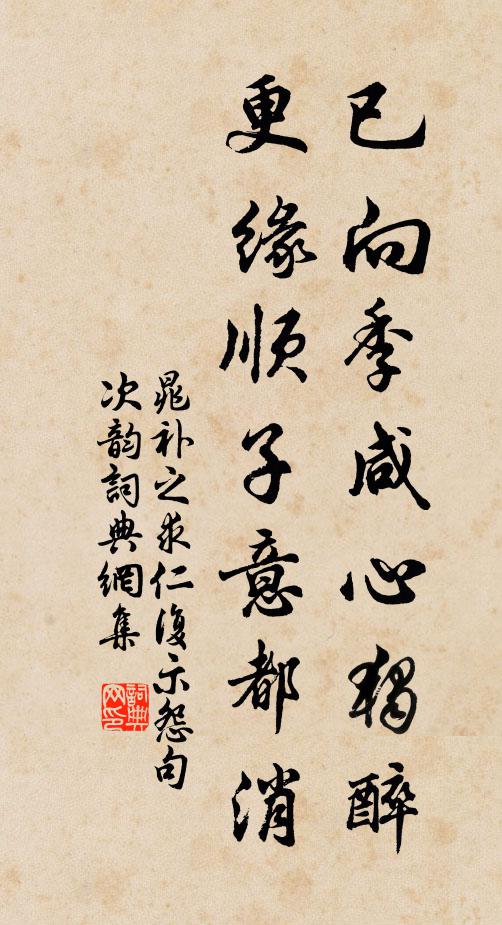 已向季咸心独醉
更缘顺子意都消
晁补之求仁復示怨句
次韵詞典網集
詞典
网印